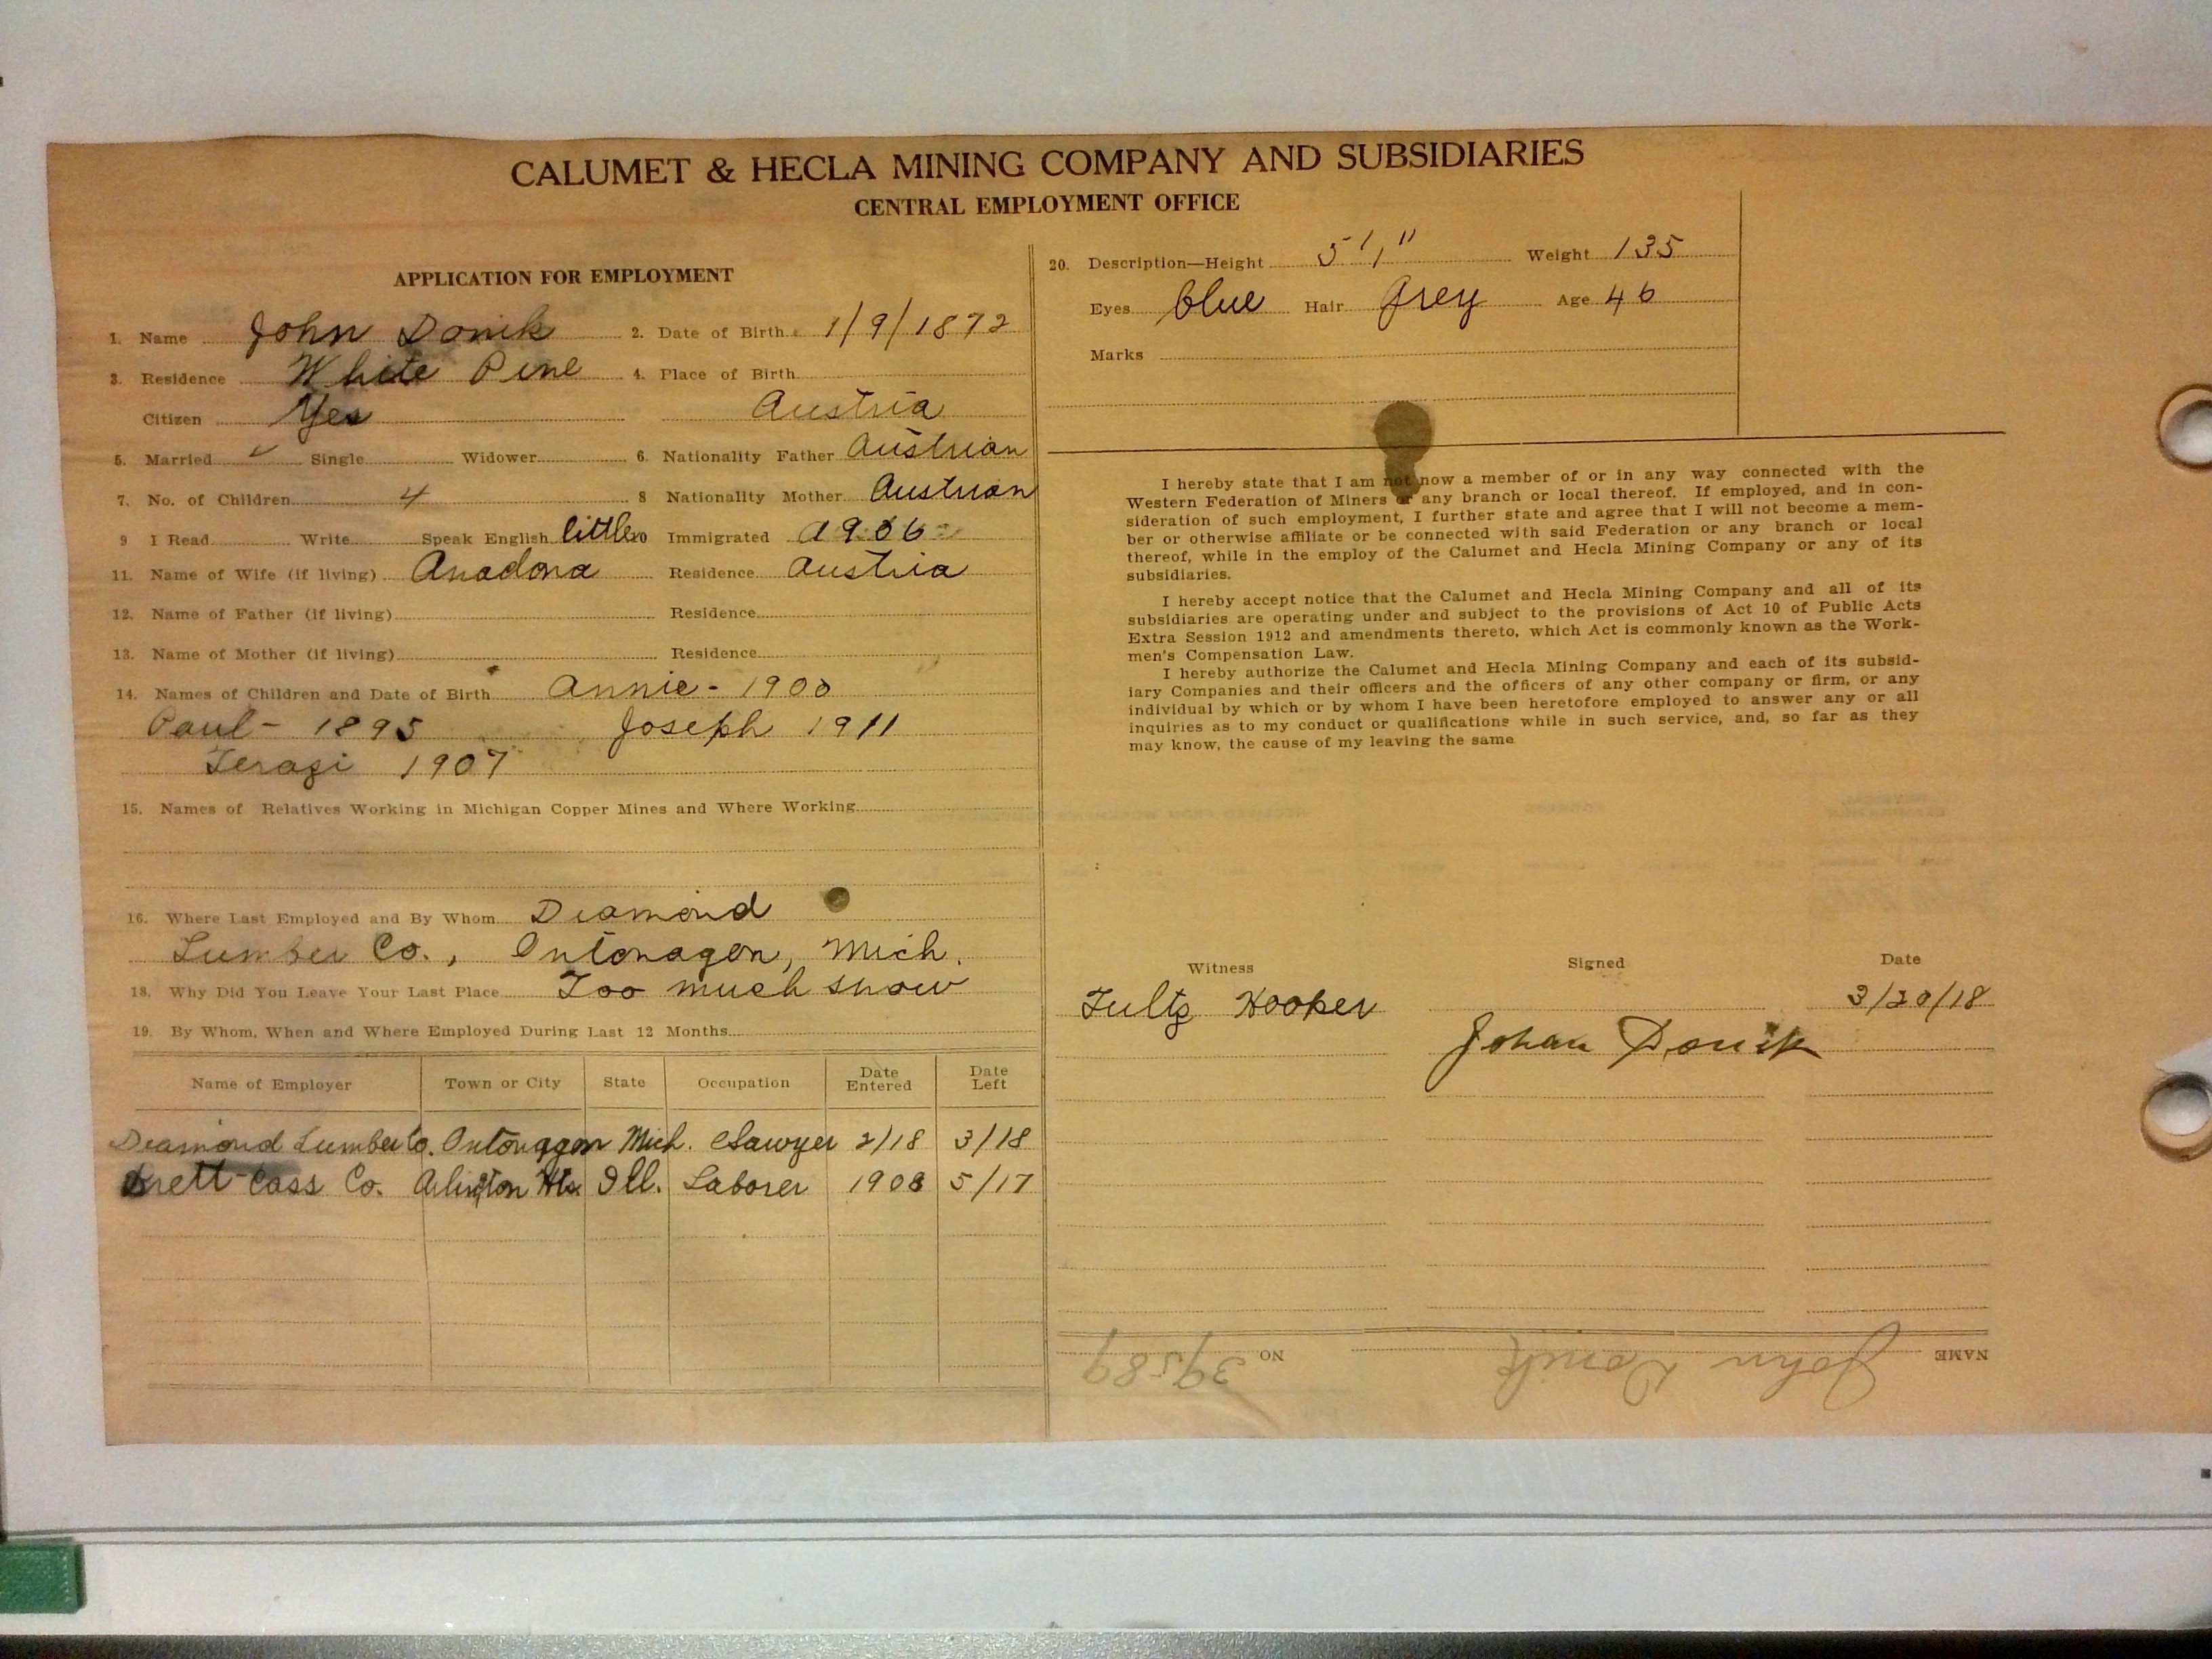 CALUMET & HECLA MINING COMPANY AND SUBSIDIARIES
CENTRAL EMPLOYMENT OFFICE
APPLICATION FOR EMPLOYMENT
1. Name John Donik 2. Date of Birth 1/9/1872
3. Residence White Pine 4. Place of Birth
Citizen Yes Austria
5. Married ✓ Single Widower 6. Nationality Father Austrian
7. No. of Children 4 8 Nationality Mother Austrian
9 I Read Write Speak English little 10 Immigrated 1906
11. Name of Wife (if living) Anadona Residence Austria
12. Name of Father (if living) Residence
13. Name of Mother (if living) Residence
14. Names of Children and Date of Birth Annie - 1900
Paul - 1895 Joseph 1911
Terazi 1907
15. Names of Relatives Working in Michigan Copper Mines and Where Working
16. Where Last Employed and By Whom Diamond
Lumber Co., Ontonagon, Mich.
18. Why Did You Leave Your Last Place Too much snow
19. By Whom, When and Where Employed During Last 12 Months
Name of Employer Town or City State Occupation Date Entered Date Left
Diamond Lumber Co. Ontonagon Mich. Sawyer 2/18 3/18
Cass Co. Arlington Hts. Ill. Laborer 1908 5/17
20. Description—Height 5'1" Weight 135
Eyes blue Hair Grey Age 46
Marks
I hereby state that I am not now a member of or in any way connected with the
Western Federation of Miners or any branch or local thereof. If employed, and in con-
sideration of such employment, I further state and agree that I will not become a mem-
ber or otherwise affiliate or be connected with said Federation or any branch or local
thereof, while in the employ of the Calumet and Hecla Mining Company or any of its
subsidiaries.
I hereby accept notice that the Calumet and Hecla Mining Company and all of its
subsidiaries are operating under and subject to the provisions of Act 10 of Public Acts
Extra Session 1912 and amendments thereto, which Act is commonly known as the Work-
men's Compensation Law.
I hereby authorize the Calumet and Hecla Mining Company and each of its subsid-
iary Companies and their officers and the officers of any other company or firm, or any
individual by which or by whom I have been heretofore employed to answer any or all
inquiries as to my conduct or qualifications while in such service, and, so far as they
may know, the cause of my leaving the same
Witness Signed Date
Fultz Hooper 3/20/18
Johan Donik
NAME John Donik NO 39589